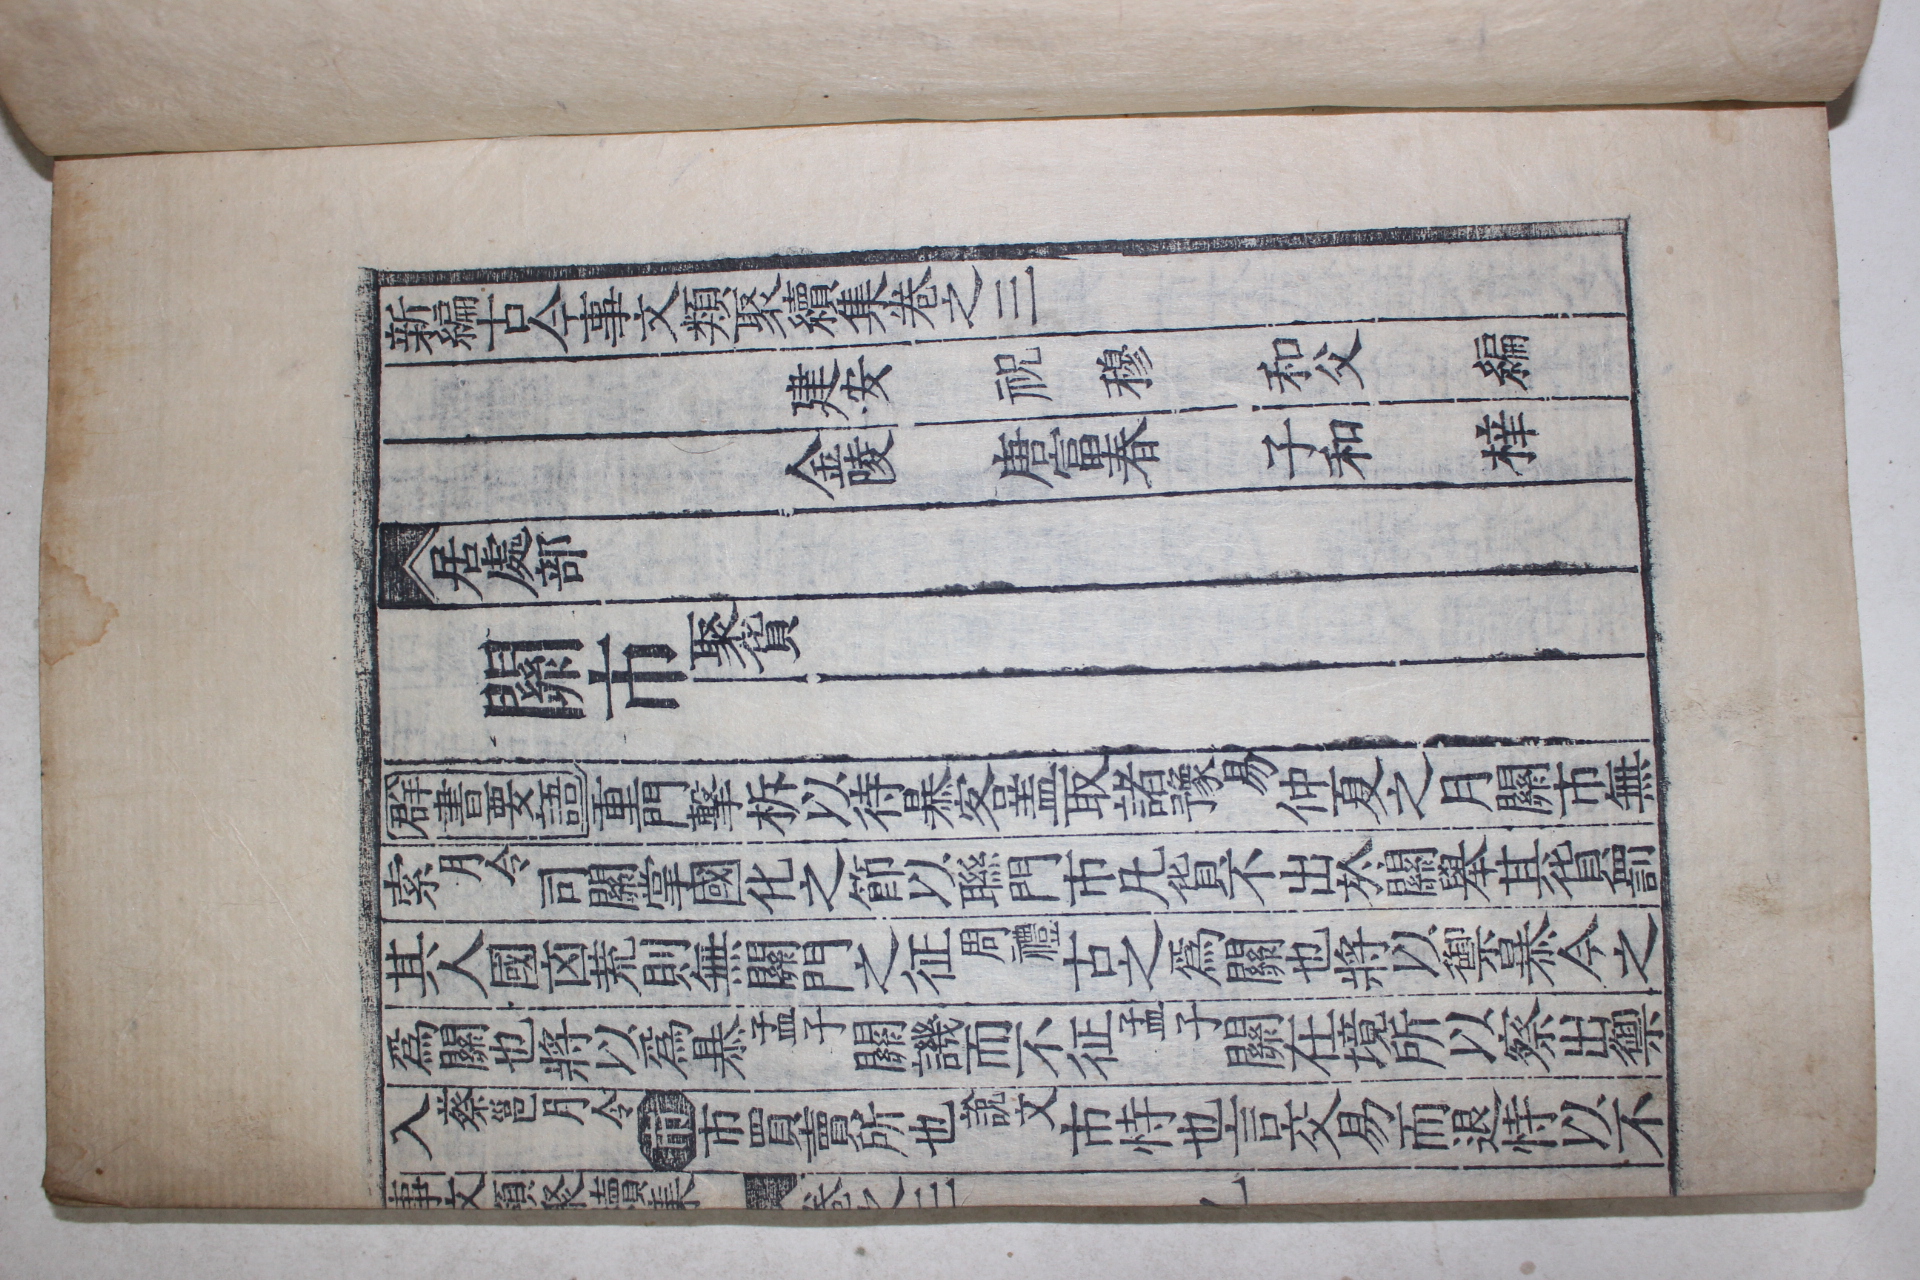 新編古今事文類聚續集卷之三
建安 祝 穆 和父 編
金陵 唐富春 子和 梓
居處部
關市 聚貨
群書要語 重門擊柝以待暴客蓋取諸豫易 仲夏之月關市無
索月令 司關掌國化之節以聯門市凡貨不出於關舉其貨罰
其人國凶荒則無關門之征周禮 古之爲關也將以禦暴今之
爲關也將以爲暴孟子 關譏而不征孟子 關在境所以察出禦
入蔡邕月令 市 市買賣所也說文 市恃也言交易而退恃以不
事文類聚續集 卷之三